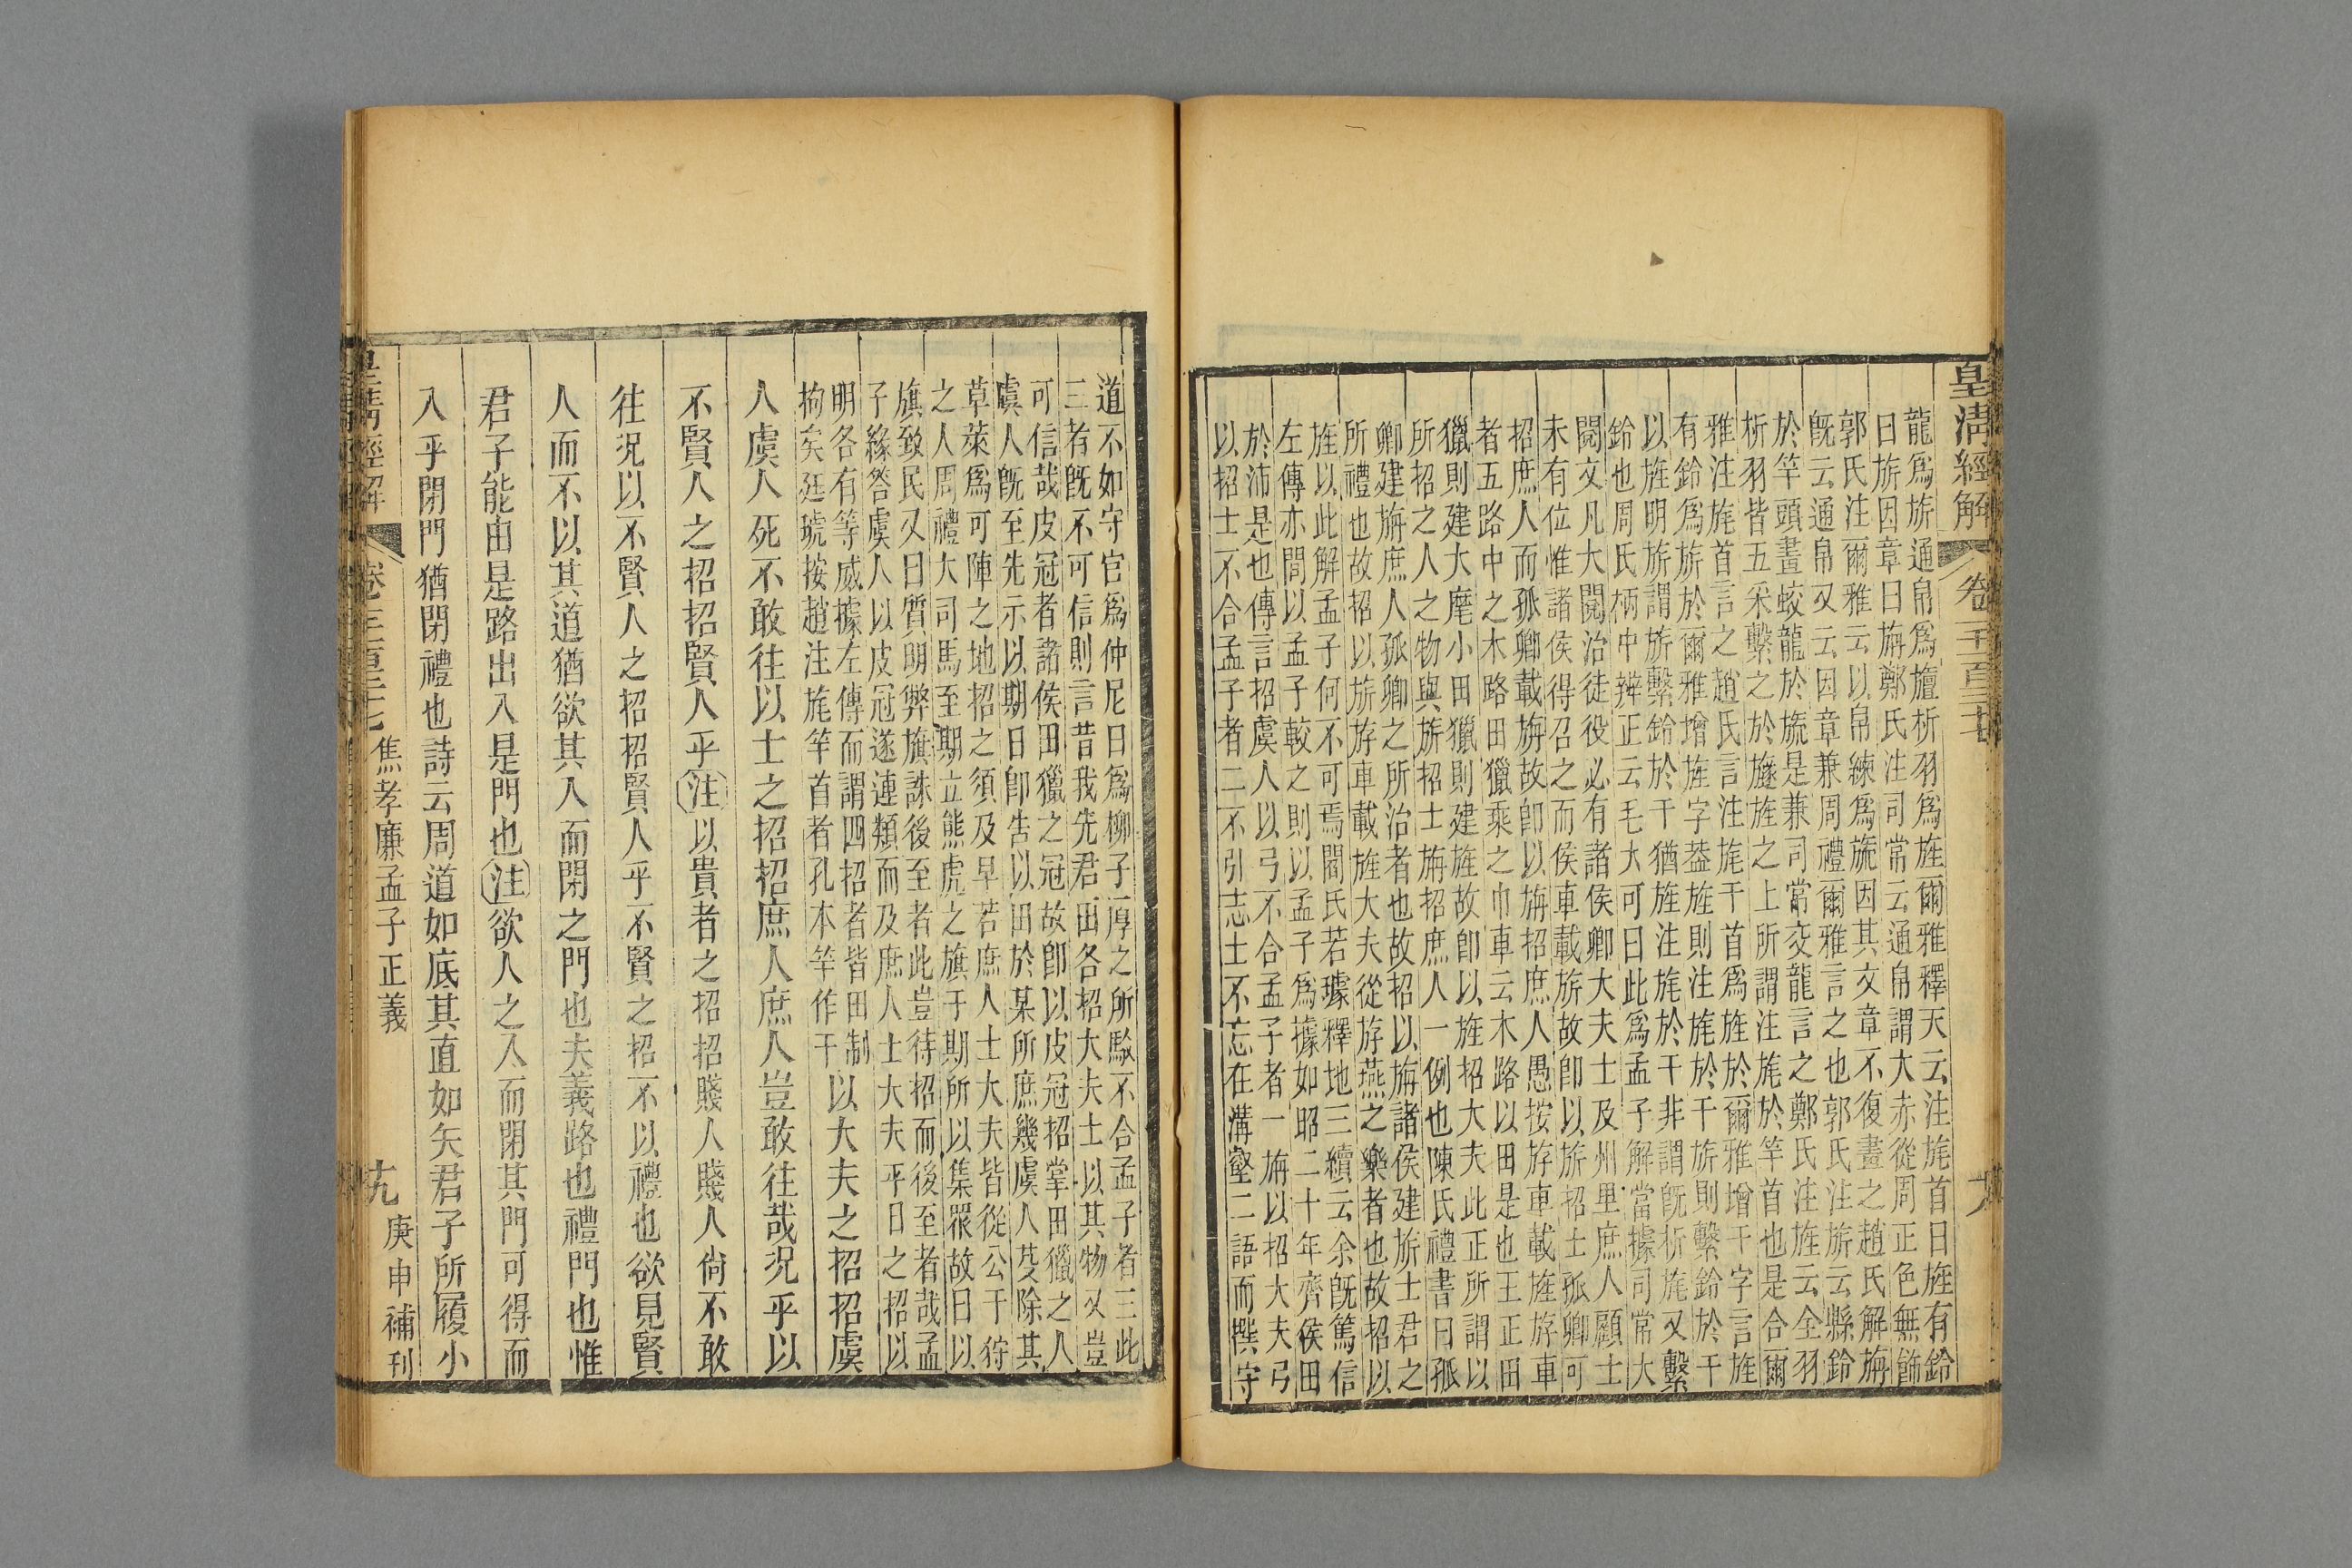 皇清經解
龍爲旂通帛爲旜析羽爲旌爾雅釋天云注旄首曰旌有鈴
曰旂因章曰旃鄭氏注司常云通帛謂大赤從周正色無飾
郭氏注爾雅云以帛練爲旒因其文章不復畫之趙氏解旃
旣云通帛又云因章兼周禮爾雅言之也郭氏注旂云縣鈴
於竿頭畫蛟龍於旒是兼司常交龍言之鄭氏注旌云全羽
析羽皆五采繫之於旞旌之上所謂注旄於竿首也是合爾
雅注旄首言之趙氏言注旄干首爲旌於爾雅增干字言旌
有鈴爲旂於爾雅增旌字葢旌則注旄於干旂則繫鈴於干
以旌明旂謂旂繫鈴於干猶旌注旄於干非謂旣析旄又繫
鈴也周氏柄中辨正云毛大可曰此爲孟子解當據司常大
閱文凡大閱治徒役必有諸侯卿大夫士及州里庶人顧士
未有位惟諸侯得召之而侯車載旂故卽以旂招士孤卿可
招庶人而孤卿載旃故卽以旃招庶人愚按斿車載旌斿車
者五路中之木路田獵乘之巾車云木路以田是也王正田
獵則建大麾小田獵則建旌故卽以旌招大夫此正所謂以
所招之人之物與旂招士旃招庶人一例也陳氏禮書曰孤
卿建旃庶人孤卿之所治者也故招以旃諸侯建旂士君之
所禮也故招以旂斿車載旌大夫從斿燕之樂者也故招以
旌以此解孟子何不可焉閻氏若璩釋地三續云余旣篤信
左傳亦間以孟子較之則以孟子爲據如昭二十年齊侯田
於沛是也傳言招虞人以弓不合孟子者一旃以招大夫弓
以招士不合孟子者二不引志士不忘在溝壑二語而撰守
道不如守官爲仲尼曰爲柳子厚之所駮不合孟子者三此
三者旣不可信則言昔我先君田各招大夫士以其物又豈
可信哉皮冠者諸侯田獵之冠故卽以皮冠招掌田獵之人
虞人旣至先示以期日卽告以田於某所庶幾虞人芟除其
草萊爲可陣之地招之須及早若庶人士大夫皆從公于狩
之人周禮大司馬至期立熊虎之旗于期所以集眾故曰以
旗致民又曰質明弊旗誅後至者此豈待招而後至者哉孟
子緣答虞人以皮冠遂連類而及庶人士大夫平日之招以
明各有等威據左傳而謂四招者皆田制
拘矣廷琥按趙注旄竿首者孔本竿作干
以大夫之招招虞
人虞人死不敢往以士之招招庶人庶人豈敢往哉況乎以
不賢人之招招賢人乎注以貴者之招招賤人賤人尙不敢
往況以不賢人之招招賢人乎不賢之招不以禮也欲見賢
人而不以其道猶欲其人而閉之門也夫義路也禮門也惟
君子能由是路出入是門也注欲人之入而閉其門可得而
入乎閉門猶閉禮也詩云周道如底其直如矢君子所履小
皇清經解
焦孝廉孟子正義
庚申補刊